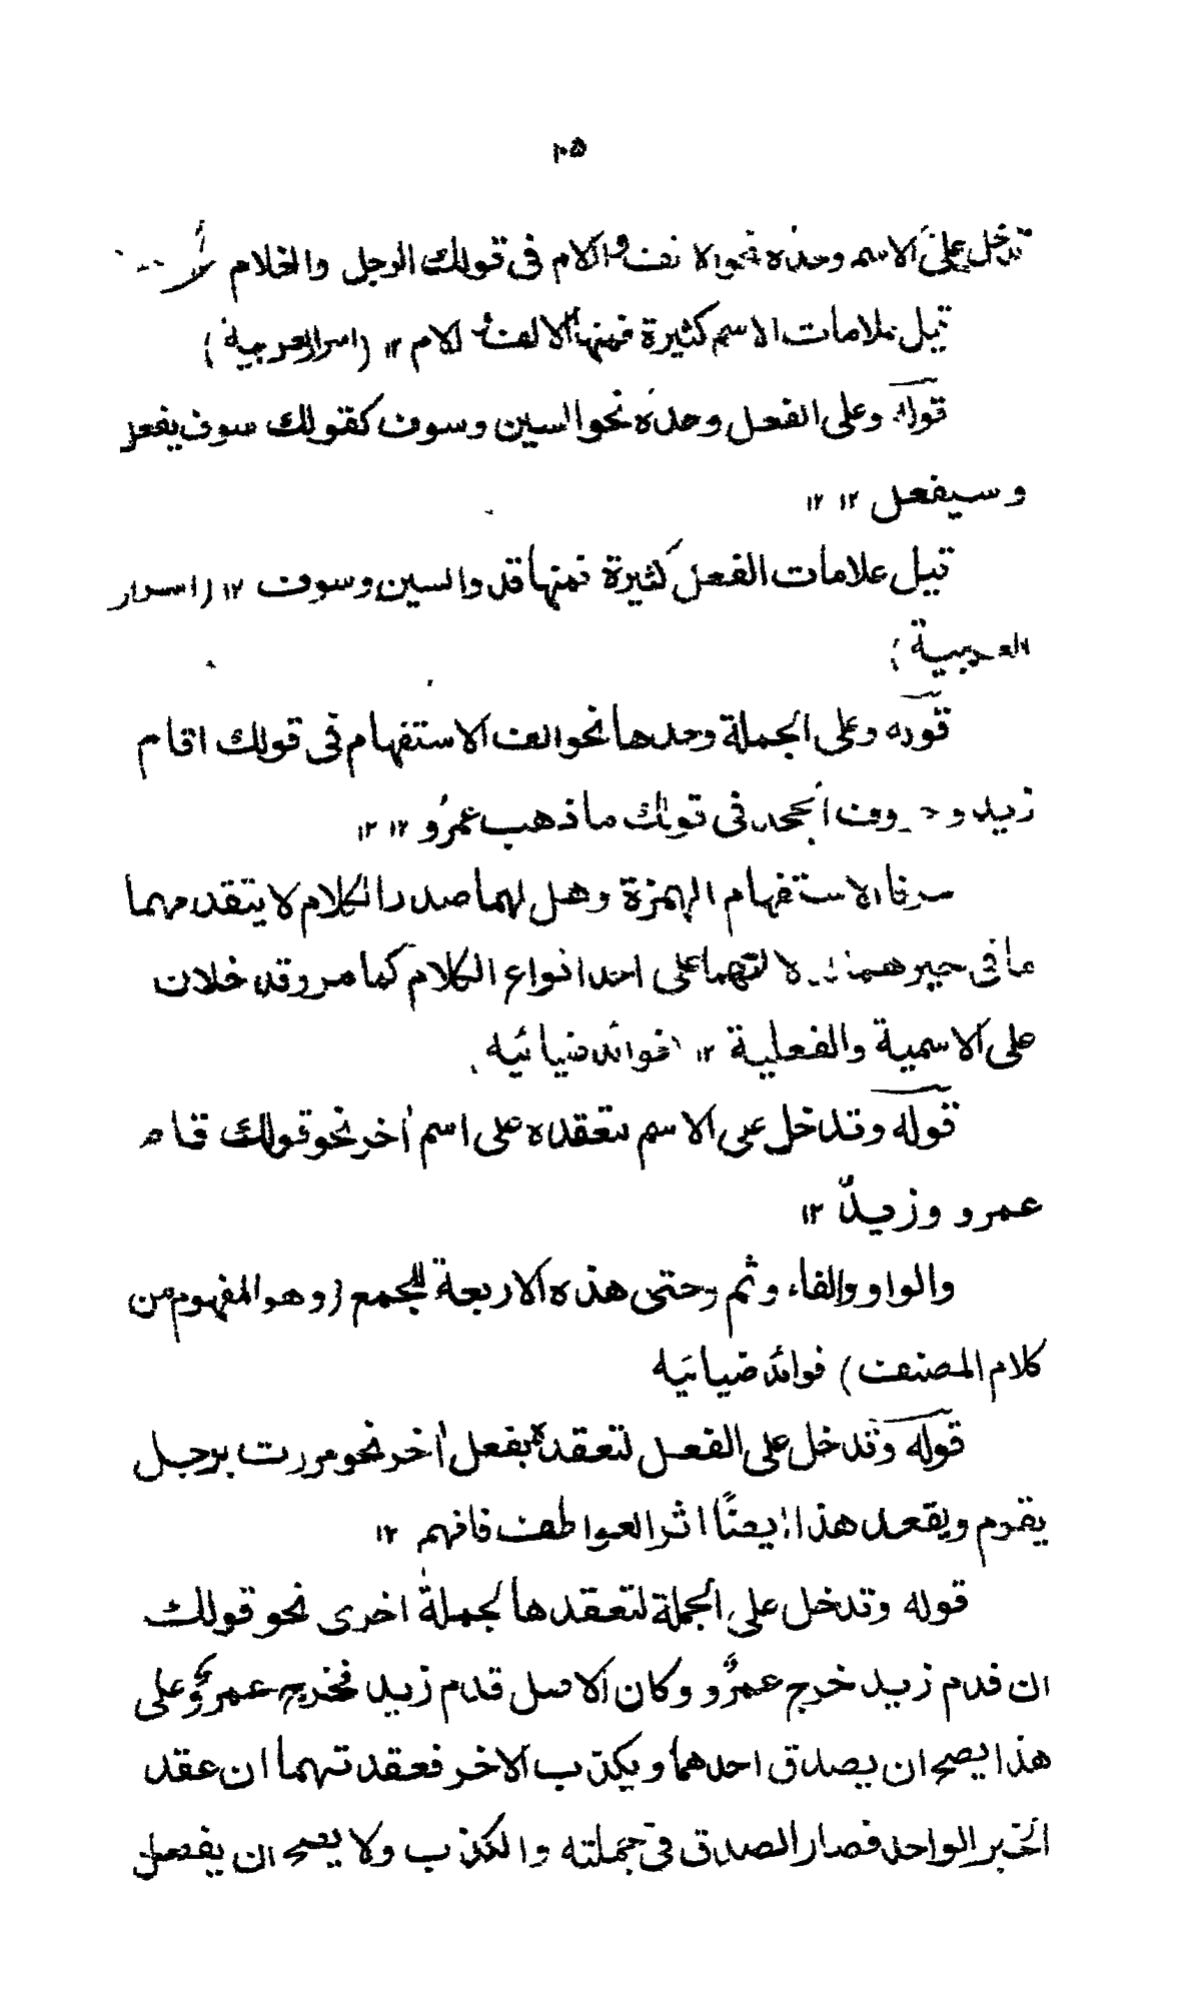 ١٠٥
تدخل على الاسم وحده نحو الالف واللام فى قولك الرجل والغلام
قيل علامات الاسم كثيرة فمنها الالف واللام ١٢ (اسرار العربية)
قوله وعلى الفعل وحده نحو السين وسوف كقولك سوف يفعل
وسيفعل ١٢ ١٢
قيل علامات الفعل كثيرة فمنها قد والسين وسوف ١٢ (اسرار
العربية)
قوله وعلى الجملة وحدها نحو الف الاستفهام فى قولك اقام
زيد وحروف الجحد فى قولك ما ذهب عمرُو ١٢ ١٢
حرفا الاستفهام الهمزة وهل لهما صدر الكلام لا يتقدمهما
ما فى حيزهما لدلالتهما على احد انواع الكلام كما مر وقد خلان
على الاسمية والفعلية ١٢ فوائد ضيائيه
قوله وتدخل على الاسم لتعقده على اسم اٰخر نحو قولك قام
عمرو وزيدٌ ١٢
والواو والفاء وثم وحتى هذه الاربعة للجمع (وهو المفهوم من
كلام المصنف) فوائد ضيائيه
قوله وتدخل على الفعل لتعقده بفعل اٰخر نحو مررت برجل
يقوم ويقعد هذا ايضًا اثر العواطف فافهم ١٢
قوله وتدخل على الجملة لتعقدها لجملة اخرى نحو قولك
ان قدم زيد خرج عمرٌو وكان الاصل قدم زيد فخرج عمرٌو على
هذا يصح ان يصدق احدهما ويكذب الاخر فعقدتهما ان عقد
الخبر الواحد فصار الصدق فى جملته والكذب ولا يصح ان يفصل